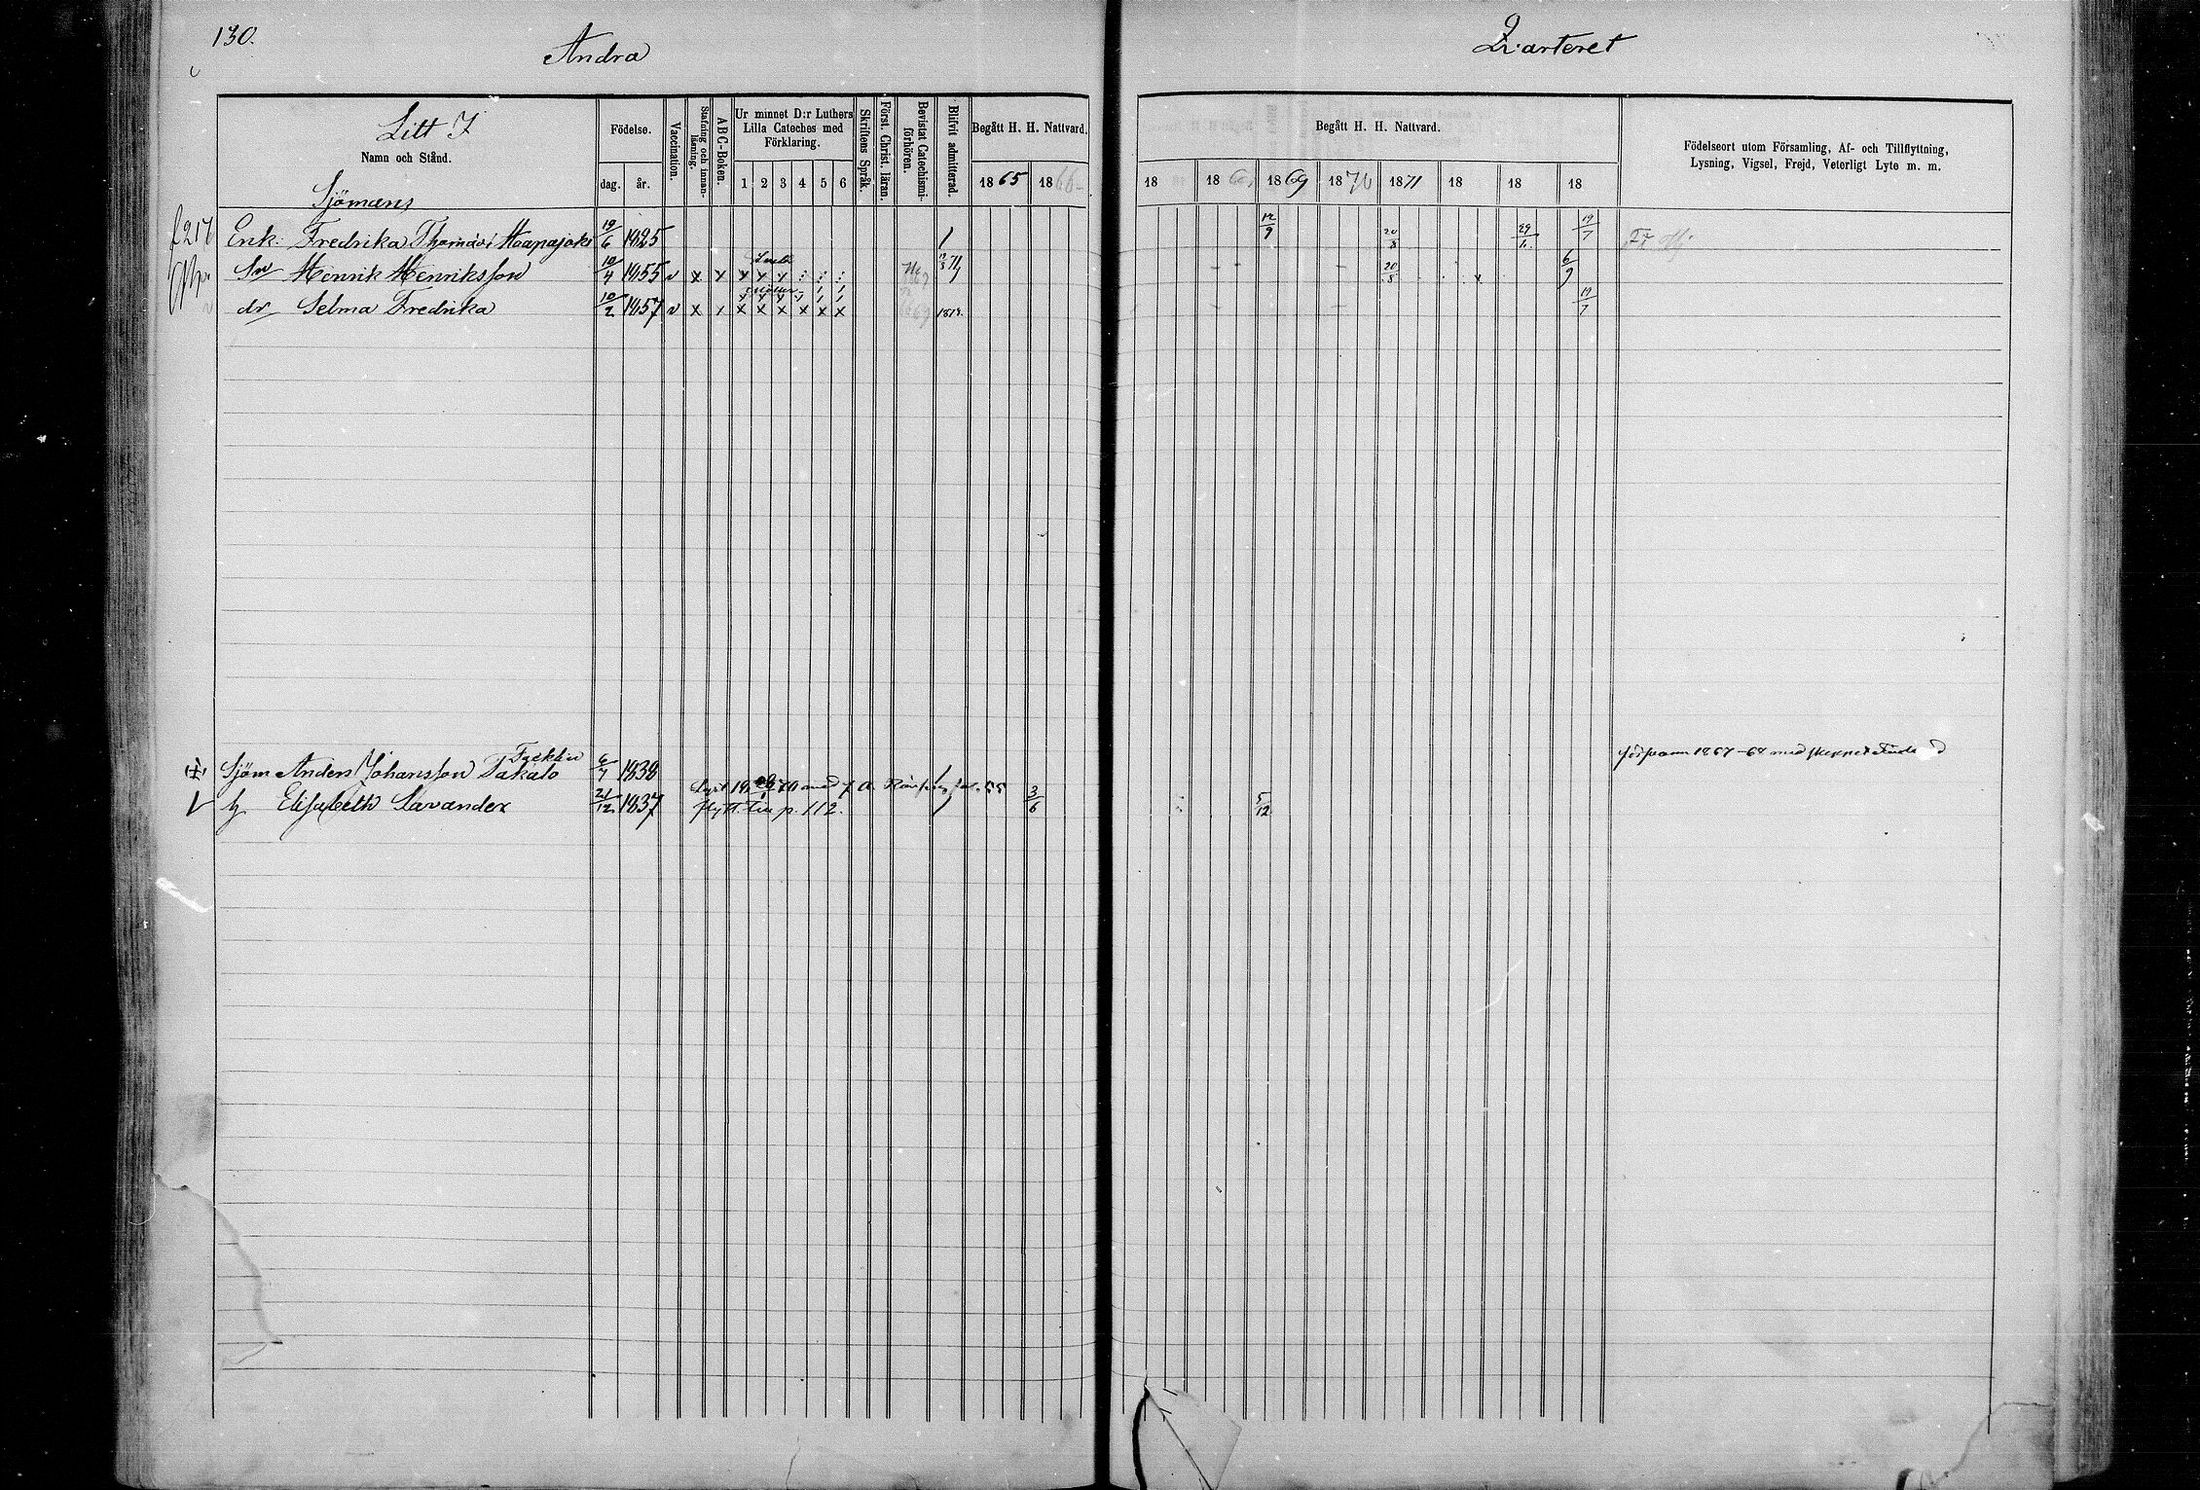 130.
Andra
Qvarteret
Litt I
Namn och Stånd.
Födelse.
dag. år.
Vaccination.
Stafning och innanläsning.
ABC-Boken.
Ur minnet D:r Luthers Lilla Cateches med Förklaring.
1 2 3 4 5 6
Skriftens Språk.
Först. Christ. läran.
Bevistat Catechismiförhören.
Blifvit admitterad.
Begått H. H. Nattvard.
1865 1866
Begått H. H. Nattvard.
18 18 1869 1870 1871 18 18 18
Födelseort utom Församling, Af- och Tillflyttning,
Lysning, Vigsel, Frejd, Veterligt Lyte m. m.
Sjömans
Enk: Fredrika Haapajoki 19/6 1825 12/9 20/8 19/7
Sn Henrik Henriksson 10/4 1855 v x x 20/8 6/9
dr Selma Fredrika 10/2 1857 v x x x x x x x 19/7
Sjöm Anders Johansson Takalo 6/7 1838 försvann 1867-68 med skeppet
h Elisabeth Savander 21/12 1837 3/6 5/12
flytt. till p. 112.